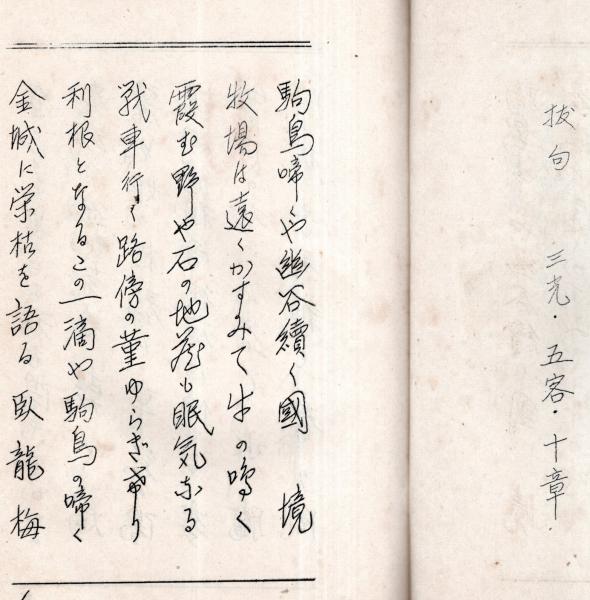 抜句　三光・五客・十章.
駒鳥啼くや幽谷續く國境
牧場は遠くかすみて牛の鳴く
霞む野や石の地蔵も眠気なる
戦車行く路傍の菫ゆらぎ
利根となるこの一滴や駒鳥の啼く
金城に栄枯を語る臥龍梅